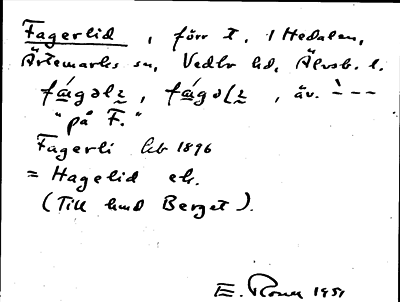 Fagerlid, förr t. 1 Hedalen,
Ärtemarks sn, Vedbo hd, Älvsb. l.
fágəlɩ, fágəlɩ, äv. ---
"på F."
Fagerli hb 1896
= Hagelid ek.
(Till hmd Berget).
E. 1951